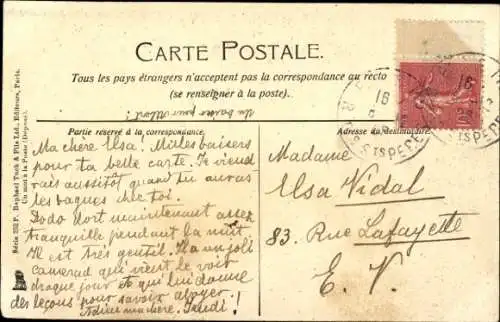 CARTE POSTALE.
Tous les pays étrangers n'acceptent pas la correspondance au recto
(se renseigner à la poste).
Un baiser pour Albert!
Partie reservé à la correspondance.
Adresse du destinataire.
Ma chère Elsa! Milles baisers
pour ta belle carte. Je viend
rais aussitôt quand tu auras
les bagues chez toi.
Dodo dort maintenant assez
tranquille pendant la nuit
Il est très gentil. Il a un joli
camerad qui vient le voir
chaque jour et qui lui donne
des leçons pour savoir aboyer
Adieu ma chère. Jeudi!
Madame
Elsa Vidal
83. Rue Lafayette
E. V.
Série 252 P. Raphael Tuck & Fils Ltd., Editeurs, Paris.
Un mot à la Poste (Déposé).
16
16
STS PERES